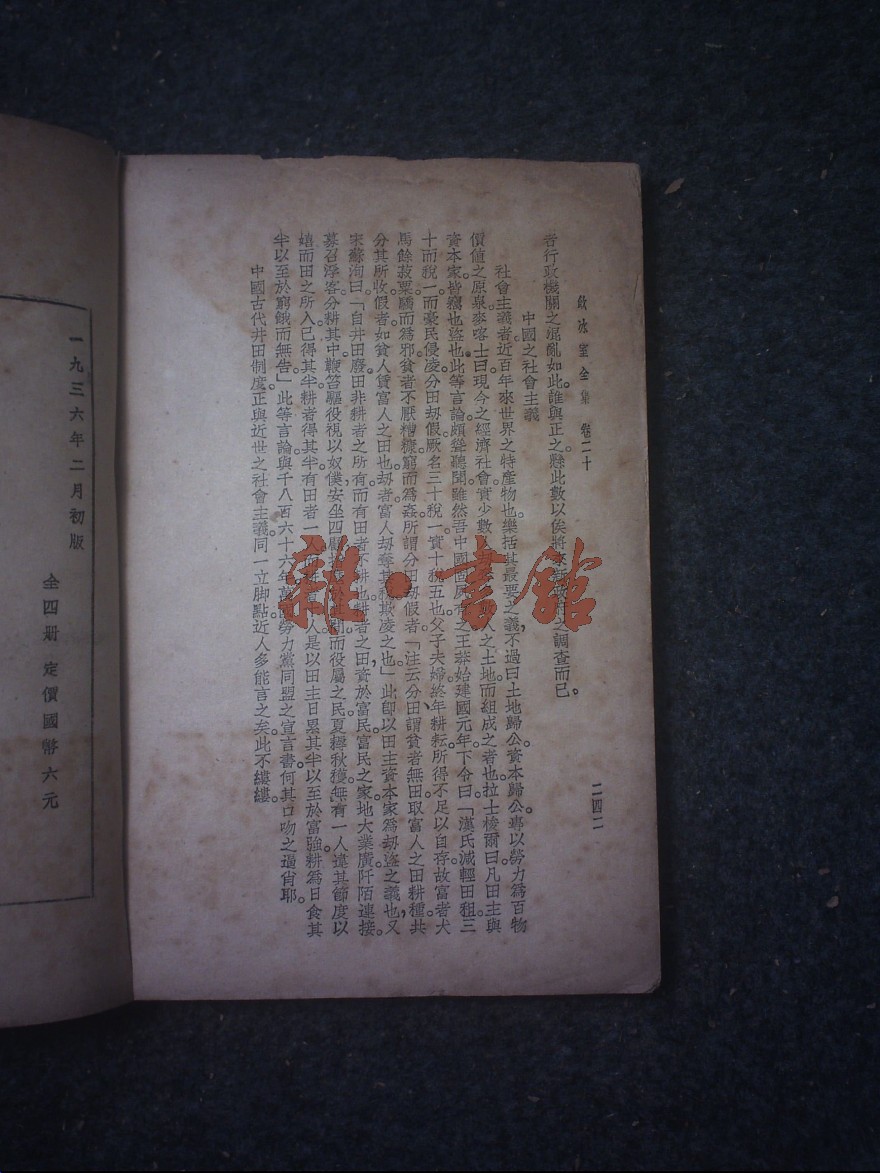 飲冰室全集 卷二十 二四二
者行政機關之混亂如此。誰與正之。懸此數以俟將來之調查而已。
中國之社會主義
社會主義者。近百年來世界之特產物也。括其最要之義。不過曰土地歸公。資本歸公。專以勞力為百物
價值之原泉。麥喀士曰。現今之經濟社會。實少數人之土地而組成之者也。拉士梭爾曰。凡田主與
資本家。皆竊也。盜也。此等言論。頗聳聽聞。雖然。吾中國固夙有之。王莽始建國元年下令曰。「漢氏減輕田租。三
十而稅一。而豪民侵凌。分田刼假。厥名三十稅一。實十稅五也。父子夫婦。終年耕耘。所得不足以自存。故富者犬
馬餘菽粟。驕而為邪。貧者不厭糟糠。窮而為姦。所謂分田刼假者。「注云。分田謂貧者無田。取富人之田耕種。共
分其所收。假者如貧人賃富人之田也。刼者富人刼奪其稅。欺凌之也」此卽以田主資本家為刼盜之義也。又
宋蘇洵曰。「自井田廢。田非耕者之所有。而有田者不耕也。耕者之田。資於富民。富民之家。地大業廣。阡陌連接。
募召浮客。分耕其中。鞭笞驅役。視以奴僕。安坐四顧。間。而役屬之民。夏耨秋穫。無有一人違其節度以
嬉。而田之所入。己得其半。耕者得其半。有田者一人。而人。是以田主日累其半以至於富強。耕為日食其
半以至於窮餓而無告」此等言論。與千八百六十六年萬國勞力黨同盟之宣言書。何其口吻之逼肖耶。
中國古代井田制度。正與近世之社會主義同一立脚點。近人多能言之矣。此不縷縷。
一九三六年二月初版
全四册 定價國幣六元
雜·書館